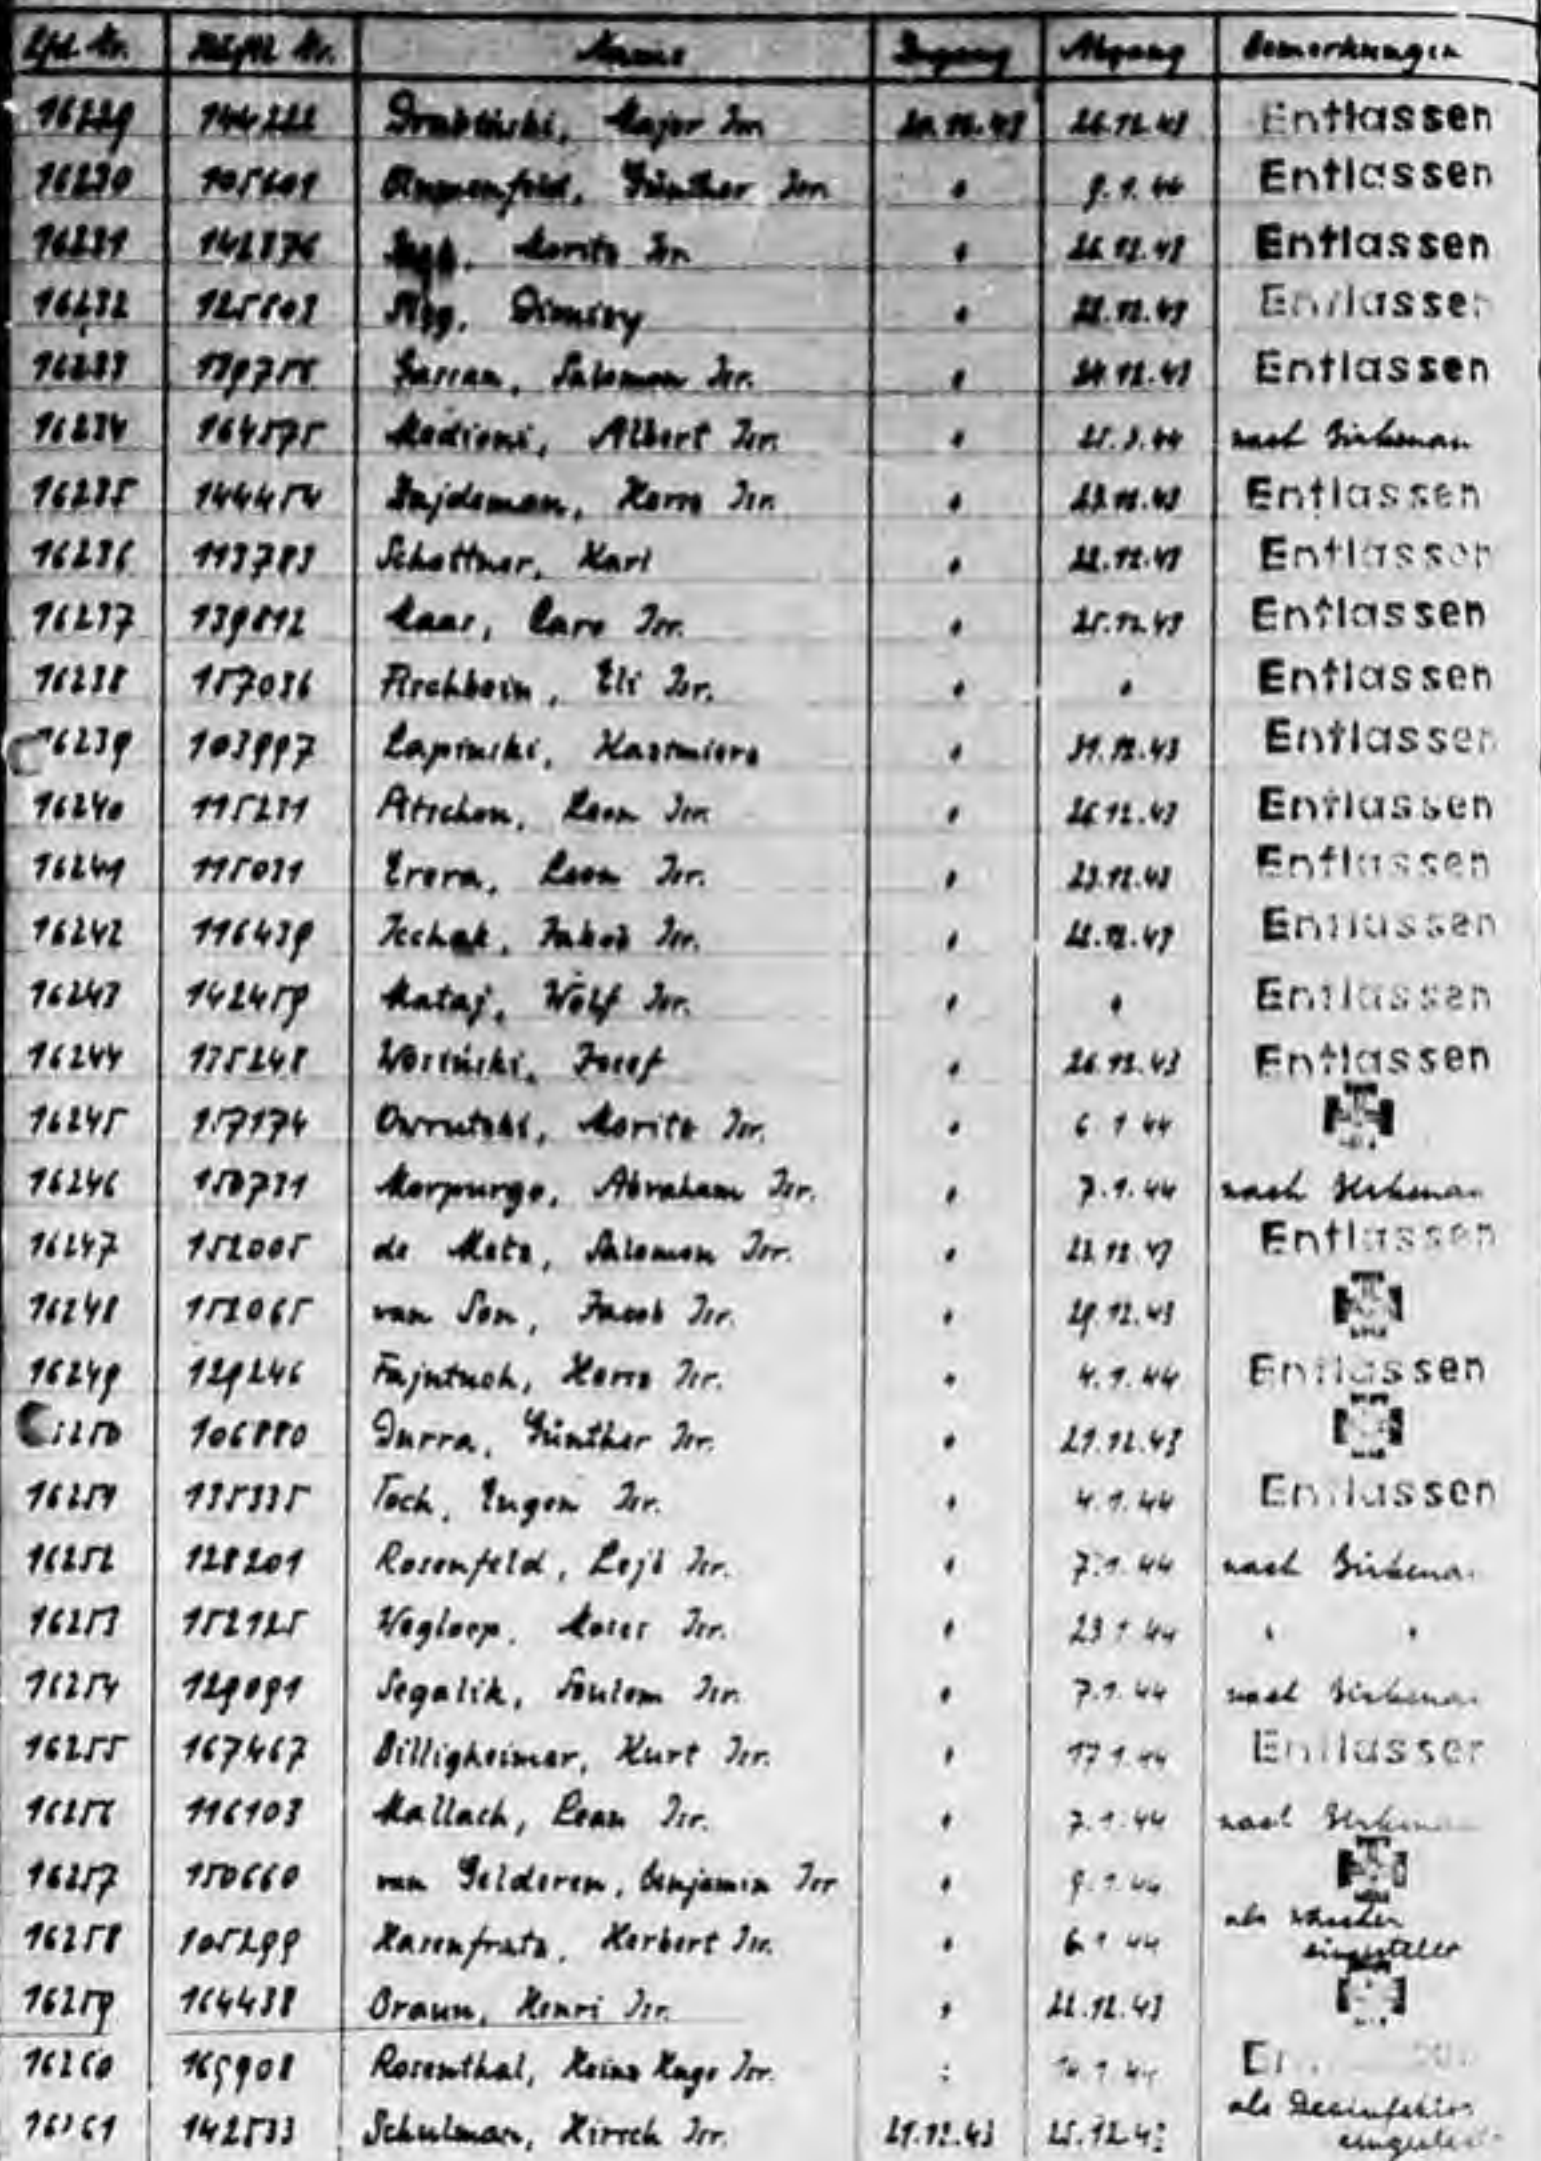 Lfd. Nr. Häftl. Nr. Name Zugang Abgang Bemerkungen
16229 144222 Drabinski, Major Isr. 20.12.43 26.12.43 Entlassen
16230 105601 Günther Isr. " 9.1.44 Entlassen
16231 142876 Moritz Isr. " 26.12.43 Entlassen
16232 125803 " 22.12.43 Entlassen
16233 Salomon Isr. " Entlassen
16234 164575 Madioni, Albert Isr. " nach Birkenau
16235 144454 Dajdeman, Hersz Isr. " 23.12.43 Entlassen
16236 113783 Schattner, Karl " 22.12.43 Entlassen
16237 139812 Maas, Caro Isr. " 25.12.43 Entlassen
16238 157036 Fischbein, Eli Isr. " " Entlassen
16239 103997 Lapinski, Kasimierz " 31.12.43 Entlassen
16240 115231 Atschon, Leon Isr. " 26.12.43 Entlassen
16241 115031 Errera, Leon Isr. " 23.12.43 Entlassen
16242 116439 Jechak, Jakob Isr. " 22.12.43 Entlassen
16243 142459 Mataj, Wolf Isr. " " Entlassen
16244 175248 Wosinski, Josef " 26.12.43 Entlassen
16245 157174 Owrutzki, Moritz Isr. " 6.1.44
16246 150731 Morpurgo, Abraham Isr. " 7.1.44 nach Birkenau
16247 152005 de Metz, Salomon Isr. " 22.12.43 Entlassen
16248 152065 van Son, Jacob Isr. " 29.12.43
16249 129246 Fajntuch, Hersz Isr. " 4.1.44 Entlassen
16250 106880 Durra, Günther Isr. " 21.12.43
16251 135335 Toch, Eugen Isr. " 4.1.44 Entlassen
16252 128201 Rosenfeld, Lejb Isr. " 7.1.44 nach Birkenau
16253 152125 Wegloop, Moses Isr. " 23.1.44 " "
16254 129091 Segalik, Isr. " 7.1.44 nach Birkenau
16255 167467 Billigheimer, Kurt Isr. " 17.1.44 Entlassen
16256 116103 Mallach, Leon Isr. " 7.1.44 nach Birkenau
16257 150660 van Gelderen, Benjamin Isr. " 9.1.44
16258 105299 Hasenfratz, Herbert Isr. " 6.1.44 als
eingestellt
16259 164438 Braun, Henri Isr. " 22.12.43
16260 165908 Rosenthal, Heinz Hugo Isr. " 14.1.44
16261 142533 Schulman, Hirsch Isr. 21.12.43 25.12.43 als Desinfektor
eingestellt